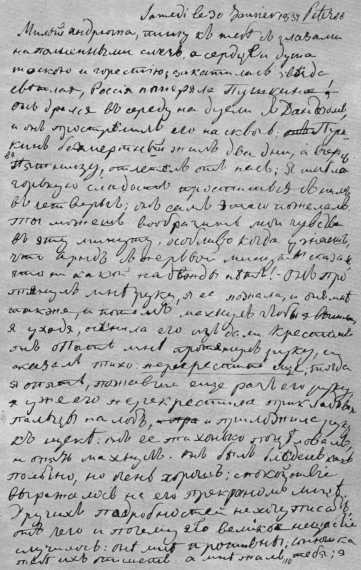 Samedi le 30 Janvier 1837 Petersb
Милый Андрюша, пишу к тебе с глазами
наполненными слезъ, а сердце и душа
тоскою и горестию; закатилась звезда
светлая, Россия потеряла Пушкина!
онъ дрался въ середу на дуели съ Дантезомъ,
и онъ прострелилъ его насквозь; Пуш-
кинъ бессмертный жилъ два дни, а вчера
въ пятницу, отлетелъ отъ насъ; я имела
горькую сладость проститься съ нимъ
въ четвергъ; онъ самъ этого пожелалъ
ты можешь вообразить мои чувства
въ эту минуту, особливо когда узнаешь,
что Арндъ съ первой минуты сказалъ
что никакой надежды нетъ! онъ про-
тянулъ мне руку, я ее пожала, и онъ мне
также, и потомъ махнулъ чтобы я вышла
я уходя, осенила его издали крестомъ
онъ опять мне протянулъ руку, и
сказалъ тихо: перекрестите еще, тогда
я опять, пожавши еще разъ его руку,
я уже его перекрестила прикладывая
пальцы на лобъ, и приложила руку
къ щеке: онъ ее тихонько поцеловалъ
и опять махнулъ. онъ былъ бледенъ какъ
полотно, но очень хорошъ; спокойствие
выражалось на его прекрасномъ лице.
Другихъ подробностей не хочу писать,
отъ чего и почему это великое нещастье
случилось: они мне противны; Сонюшка
тебе ихъ опишетъ. а мне жаль тебя; я